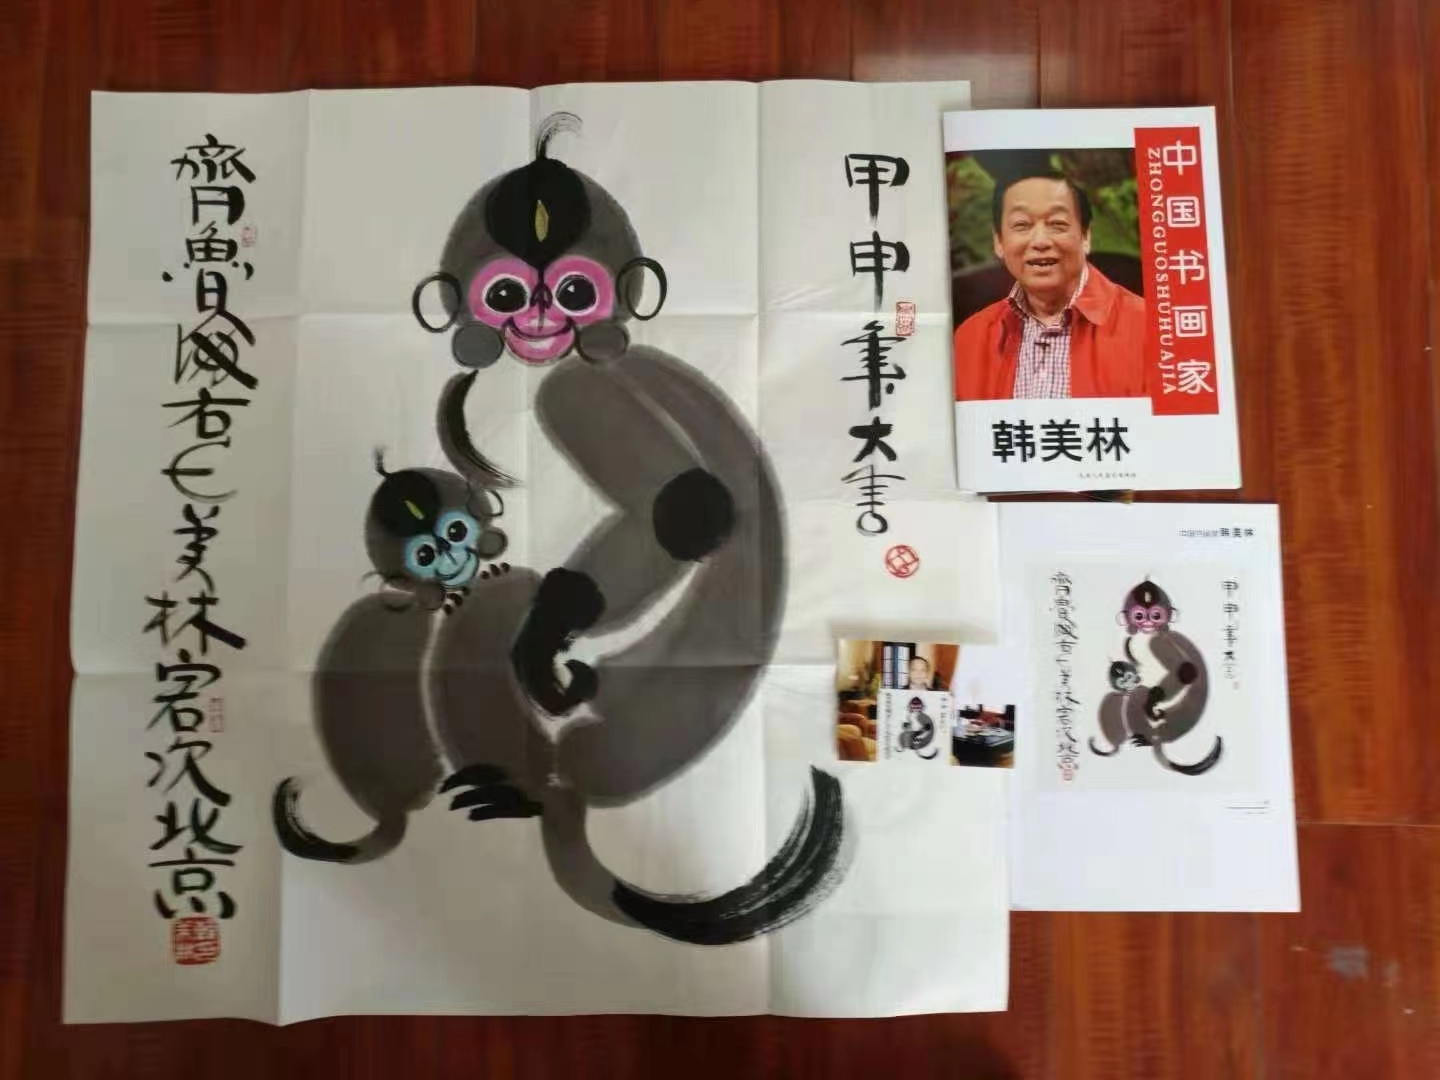 甲申年大
齊魯海右美林客次北京
中国书画家
ZHONGGUOSHUHUAJIA
韩美林
中国书画家 韩美林
甲申年大
齊魯海右美林客次北京